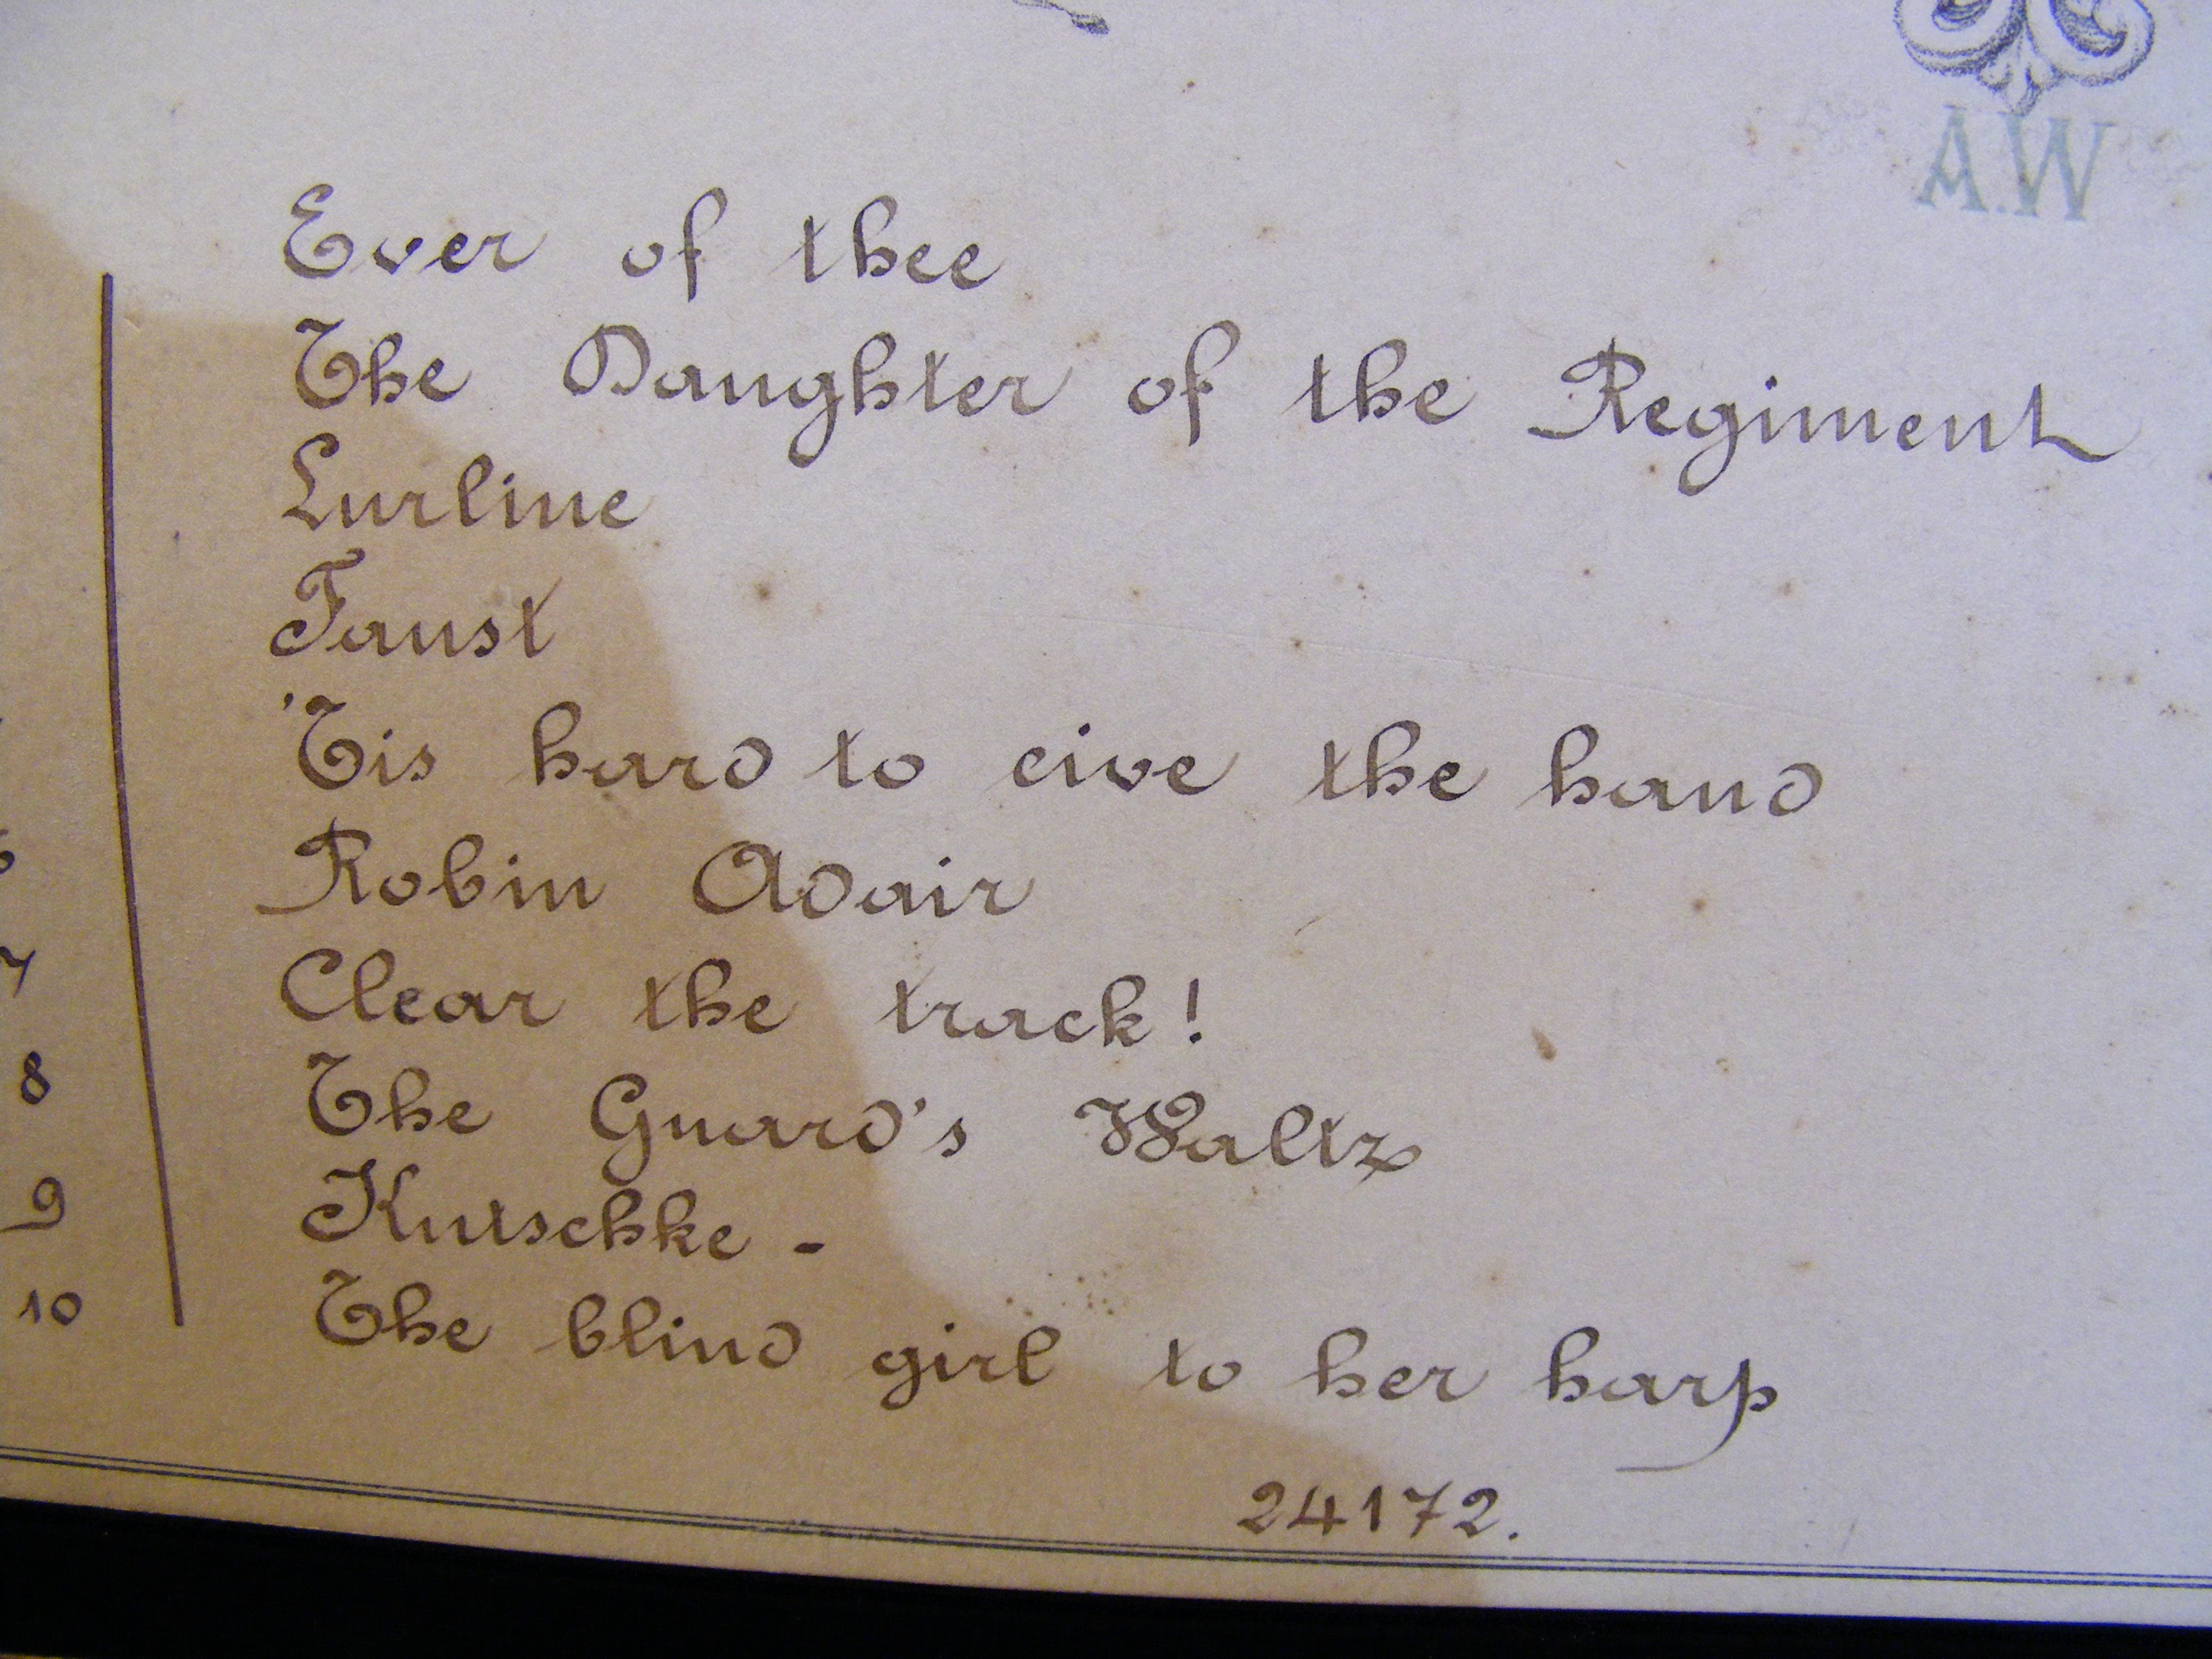 A.W
Ever of thee
The Daughter of the Regiment
Lurline
Faust
'Tis hard to cive the hand
Robin Adair
7 Clear the track!
8 The Guard's Waltz
9 Kutschke -
10 The blind girl to her harp
24172.